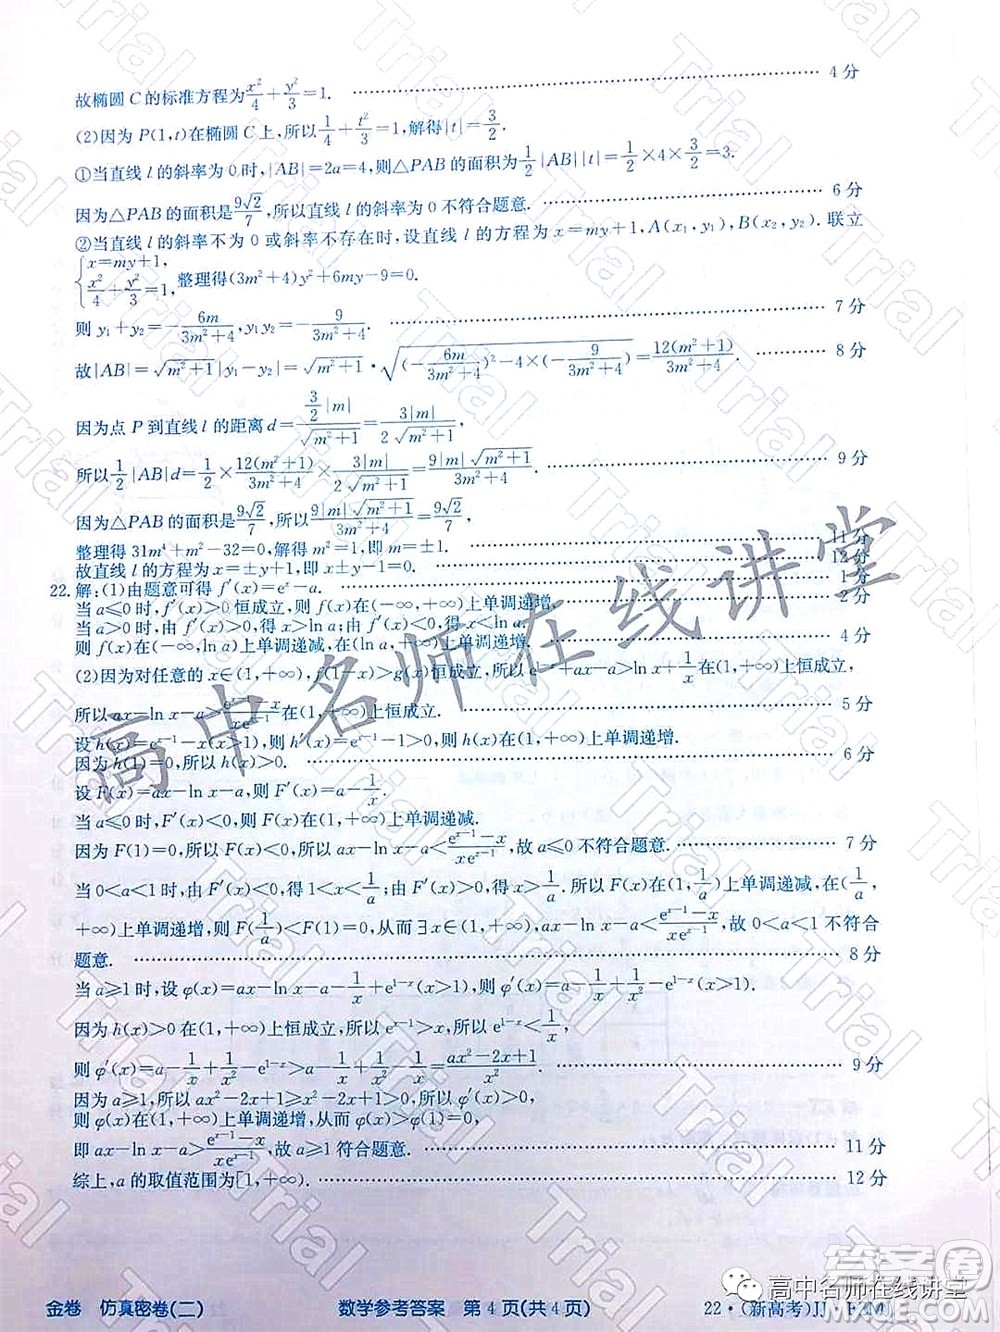 故椭圆C的标准方程为x²/4+y²/3=1. 4分
(2)因为P(1,t)在椭圆C上,所以1/4+t²/3=1,解得|t|=3/2.
①当直线l的斜率为0时,|AB|=2a=4,则△PAB的面积为1/2|AB||t|=1/2×4×3/2=3.
因为△PAB的面积是9√2/7,所以直线l的斜率为0不符合题意. 6分
②当直线l的斜率不为0或斜率不存在时,设直线l的方程为x=my+1,A(x₁,y₁),B(x₂,y₂).联立
{x=my+1, x²/4+y²/3=1, 整理得(3m²+4)y²+6my-9=0.
则y₁+y₂=-6m/(3m²+4),y₁y₂=-9/(3m²+4). 7分
故|AB|=√(m²+1)|y₁-y₂|=√(m²+1)·√((-6m/(3m²+4))²-4×(-9/(3m²+4)))=12(m²+1)/(3m²+4). 8分
因为点P到直线l的距离d=(3/2|m|)/√(m²+1)=3|m|/(2√(m²+1)),
所以1/2|AB|d=1/2×12(m²+1)/(3m²+4)×3|m|/(2√(m²+1))=9|m|√(m²+1)/(3m²+4). 9分
因为△PAB的面积是9√2/7,所以9|m|√(m²+1)/(3m²+4)=9√2/7,
整理得31m⁴+m²-32=0,解得m²=1,即m=±1. 11分
故直线l的方程为x=±y+1. 12分
22.解:(1)由题意可得f′(x)=eˣ-a. 1分
当a≤0时,f′(x)>0恒成立,则f(x)在(-∞,+∞)上单调递增. 2分
当a>0时,由f′(x)>0,得x>ln a,由f′(x)<0,得x<ln a,
则f(x)在(-∞,ln a)上单调递减,在(ln a,+∞)上单调递增. 4分
(2)因为对任意的x∈(1,+∞),f(1-x)>g(x)恒成立,即e¹⁻ˣ+ax-a>ln x+1/x在(1,+∞)上恒成立,
所以ax-ln x-a>(eˣ⁻¹-x)/(xeˣ⁻¹)在(1,+∞)上恒成立. 5分
设h(x)=eˣ⁻¹-x(x>1),则h′(x)=eˣ⁻¹-1>0,h(x)在(1,+∞)上单调递增.
因为h(1)=0,所以h(x)>0. 6分
设F(x)=ax-ln x-a,则F′(x)=a-1/x.
当a≤0时,F′(x)<0,则F(x)在(1,+∞)上单调递减.
因为F(1)=0,所以F(x)<0,所以ax-ln x-a<(eˣ⁻¹-x)/(xeˣ⁻¹),故a≤0不符合题意. 7分
当0<a<1时,由F′(x)<0,得1<x<1/a;由F′(x)>0,得x>1/a,所以F(x)在(1,1/a)上单调递减,在(1/a,
+∞)上单调递增,所以F(1/a)<F(1)=0,从而∃x∈(1,+∞),ax-ln x-a<(eˣ⁻¹-x)/(xeˣ⁻¹),故0<a<1不符合
题意. 8分
当a≥1时,设φ(x)=ax-ln x-1/x-a+e¹⁻ˣ(x>1),则φ′(x)=a-1/x+1/x²-e¹⁻ˣ.
因为h(x)>0在(1,+∞)上恒成立,所以eˣ⁻¹>x,所以e¹⁻ˣ<1/x,
则φ′(x)>a-1/x+1/x²-1/x=(ax²-2x+1)/x². 9分
因为a≥1,所以ax²-2x+1≥x²-2x+1>0,所以φ′(x)>0,
则φ(x)在(1,+∞)上单调递增,从而φ(x)>φ(1)=0,
即ax-ln x-a>(eˣ⁻¹-x)/(xeˣ⁻¹),故a≥1符合题意. 11分
综上,a的取值范围为[1,+∞). 12分
高中名师在线讲堂
金卷 仿真密卷(二) 数学参考答案 第4页(共4页) 22·(新高考)JJ·
高中名师在线讲堂
答案圈
Trial